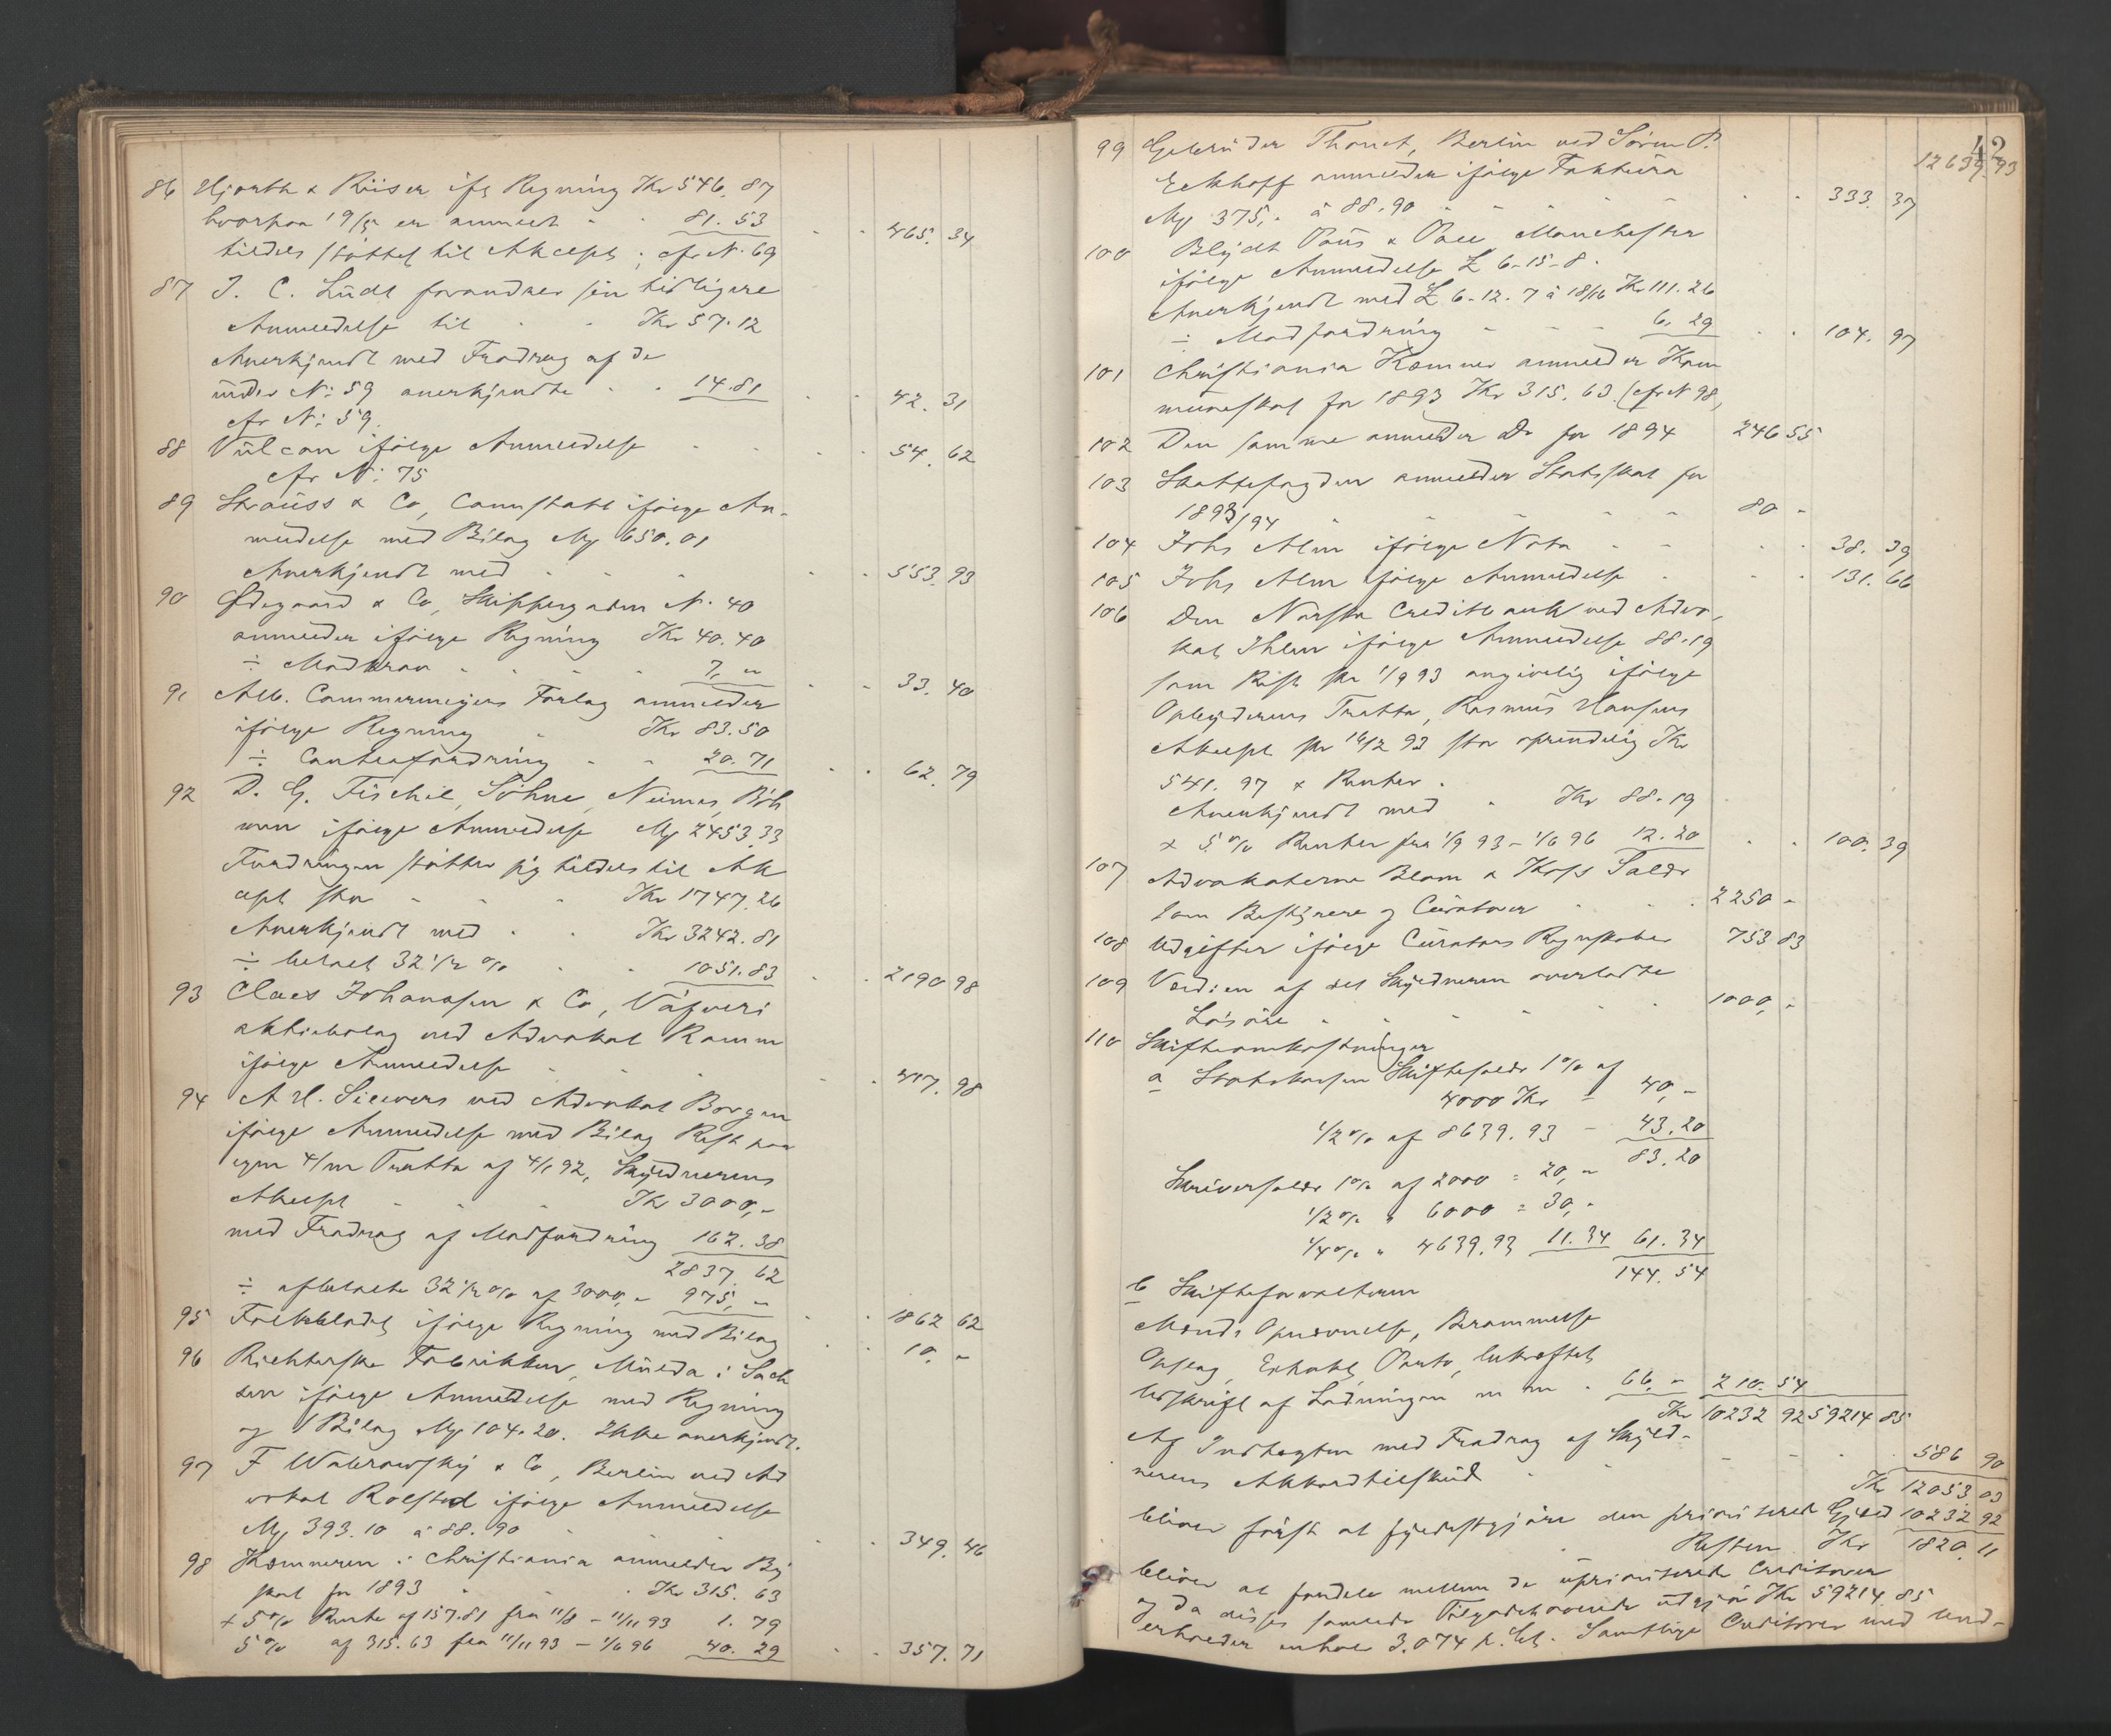 86 Hjorth & Riiser ifg Regning Kr 546.87
hvorpaa 19/5 er anmeldt - - 81.53 - - 465.34
tildels støttet til Akcept; cfr N. 69
87 J. C. Lüdt forandrer sin tidligere
Anmeldelse til - - Kr 57.12
Anerkjendt med Fradrag af de
under N: 59 anerkjendte - - 14.81 - - 42.31
cfr N: 59.
88 Vulcan ifølge Anmeldelse - - - - 54.62
cfr N: 75
89 Strauss & Co, Cannstatt ifølge An-
meldelse med Bilag Mk 650.01
Anerkjendt med - - - - - 553.93
90 Ødegaard & Co, Skippergaden N. 40
anmelder ifølge Regning Kr 40.40
÷ Modkrav - - - - 7, " - - 33.40
91 Alb. Cammermeyers Forlag anmelder
ifølge Regning - Kr 83.50
÷ Contrafordring - - 20.71 - - 62.79
92 D. G. Fischel, Söhne, Niemes, Böh
men ifølge Anmeldelse Mk 2453.33
Fordringen støtter sig tildels til Ak
cept stor - - - Kr 1747.26
Anerkjendt med - - Kr 3242.81
÷ betalt 32 1/2 % - - 1051.83 - - 2190 98
93 Claes Johansson & Co, Väfveri
aktiebolag ved Advokat Ramm
ifølge Anmeldelse - - - - - 417.98
94 A H. Sievers ved Advokat Borgen
ifølge Anmeldelse med Bilag Rest paa
egen 4/m Tratta af 4/1 92, Skyldnerens
Akcept - - - Kr 3000,-
med Fradrag af Modfordring 162.38
2837.62
÷ afbetalte 32 1/2 % af 3000,- 975, " - - 1862 62
95 Folkebladet ifølge Regning med Bilag - - 10, -
96 Richterske Fabrikker, Mulda i Sach
sen ifølge Anmeldelse med Regning
og 1 Bilag Mk 104.20. Ikke anerkjendt.
97 F Wabrowsky & Co, Berlin ved Ad
vokat Rolsted ifølge Anmeldelse
Mk 393.10 à 88.90 - - - - 349.46
98 Kæmneren i Christiania anmelder By
skat for 1893 - - - Kr 315.63
+ 5 % Rente af 157.81 fra 11/8 - 11/11 93 1.79
5 % af 315.63 fra 11/11 93 - 1/6 96 40.29 - - 357.71
42
12639.93
99 Gebrüder Thonet, Berlin ved Søren P.
Eckhoff anmelder ifølge Faktura
Mk 375,- à 88.90 - - - - - - 333.37
100 Blydt Paus & Pace Manchester
ifølge Anmeldelse £ 6-15-8.
Anerkjendt med £ 6-12.7 à 18/16 Kr 111.26
÷ Modfordring - - - 6.29 - - 104.97
101 Christiania Kæmner anmelder Kom
muneskat for 1893 Kr 315.63. (cfr N 98,
102 Den samme anmelder Do for 1894 246 55
103 Skattefogden anmelder Statsskat for
1893/94 - - - - - 80 -
104 Johs Alm ifølge Nota - - - - 38.39
105 Johs Alm ifølge Anmeldelse - - - 131.66
106 Den Norske Creditbank ved Advo-
kat Ihlen ifølge Anmeldelse 88.19
som Rest pr 1/9 93 angivelig ifølge
Opbyderens Tratta, Rasmus Hansens
Akcept pr 14/2 93 stor oprindelig Kr
541.97 + Renter.
Anerkjendt med - Kr 88.19
+ 5 % Renter fra 1/9 93 - 1/6 96 12.20 - - 100.39
107 Advokaterne Blom & Kops Salær
som Bestyrere og Curatorer - - - 2250 -
108 Udgifter ifølge Curators Regnskaber 753 83
109 Værdien af det Skyldneren overladte
Løsøre - - - - - 1000, -
110 Skifteomkostninger
a Statskassen Skiftesalær 1 % af
4000 Kr = 40, -
1/2 % af 8639.93 - 43.20
83.20
Skriversalær 1 % af 2000 = 20, -
1/2 % " 6000 = 30, -
1/4 % " 4639.93 11.34 61.34
144.54
b Skifteforvalteren
Mænds Opnævnelse, Berammelse
Opslag, Extrakt, Porto, bekræftet
Udskrift af Lodningen m m - 66, - 210.54
Kr 10232 92 59214 85
Af Indtægten med Fradrag af Skyld-
nerens Akkordtilskud - - - - - 586 90
Kr 12053.03
bliver først at fyldestgjøre den prioriterede Gjæld 10232.92
Resten Kr 1820.11
bliver at fordele mellem de uprioriterede Creditorer
og da disses samlede Tilgodehavende udgjør Kr 59214.85
erholder enhver 3.074 p. Ct. Samtlige Creditorer med Und-